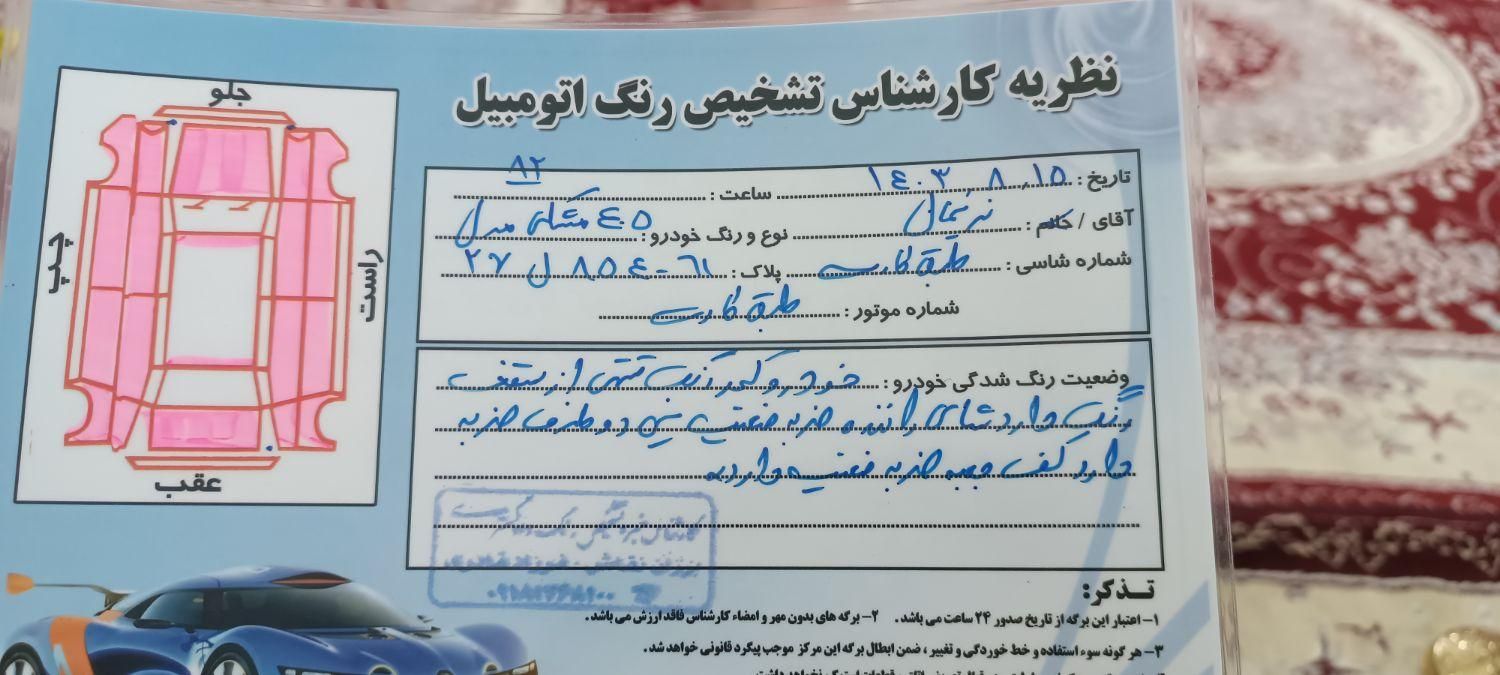 نظریه کارشناس تشخیص رنگ اتومبیل
جلو
چپ
راست
عقب
تاریخ : ۱۴۰۳,۸,۱۵ ساعت :
۸۲
آقای / خانم : نریمانی نوع و رنگ خودرو : ۴۰۵ مشکی مدل
شماره شاسی : طبق کارت پلاک : ۶۱-۸۵۴ ل ۲۷
شماره موتور : طبق کارت
وضعیت رنگ شدگی خودرو : خودرو کلا رنگ منتهی از سقف
رنگ دارد شاسی راننده ضربه ضعیف سینی دو طرف ضربه
دارد کف جعبه ضربه ضعیف دارد
کارشناس فنی تشخیص رنگ
تـذکر:
۱– اعتبار این برگه از تاریخ صدور ۲۴ ساعت می باشد. ۲– برگه های بدون مهر و امضاء کارشناس فاقد ارزش می باشد.
۳– هر گونه سوء استفاده و خط خوردگی و تغییر ، ضمن ابطال برگه این مرکز موجب پیگرد قانونی خواهد شد.